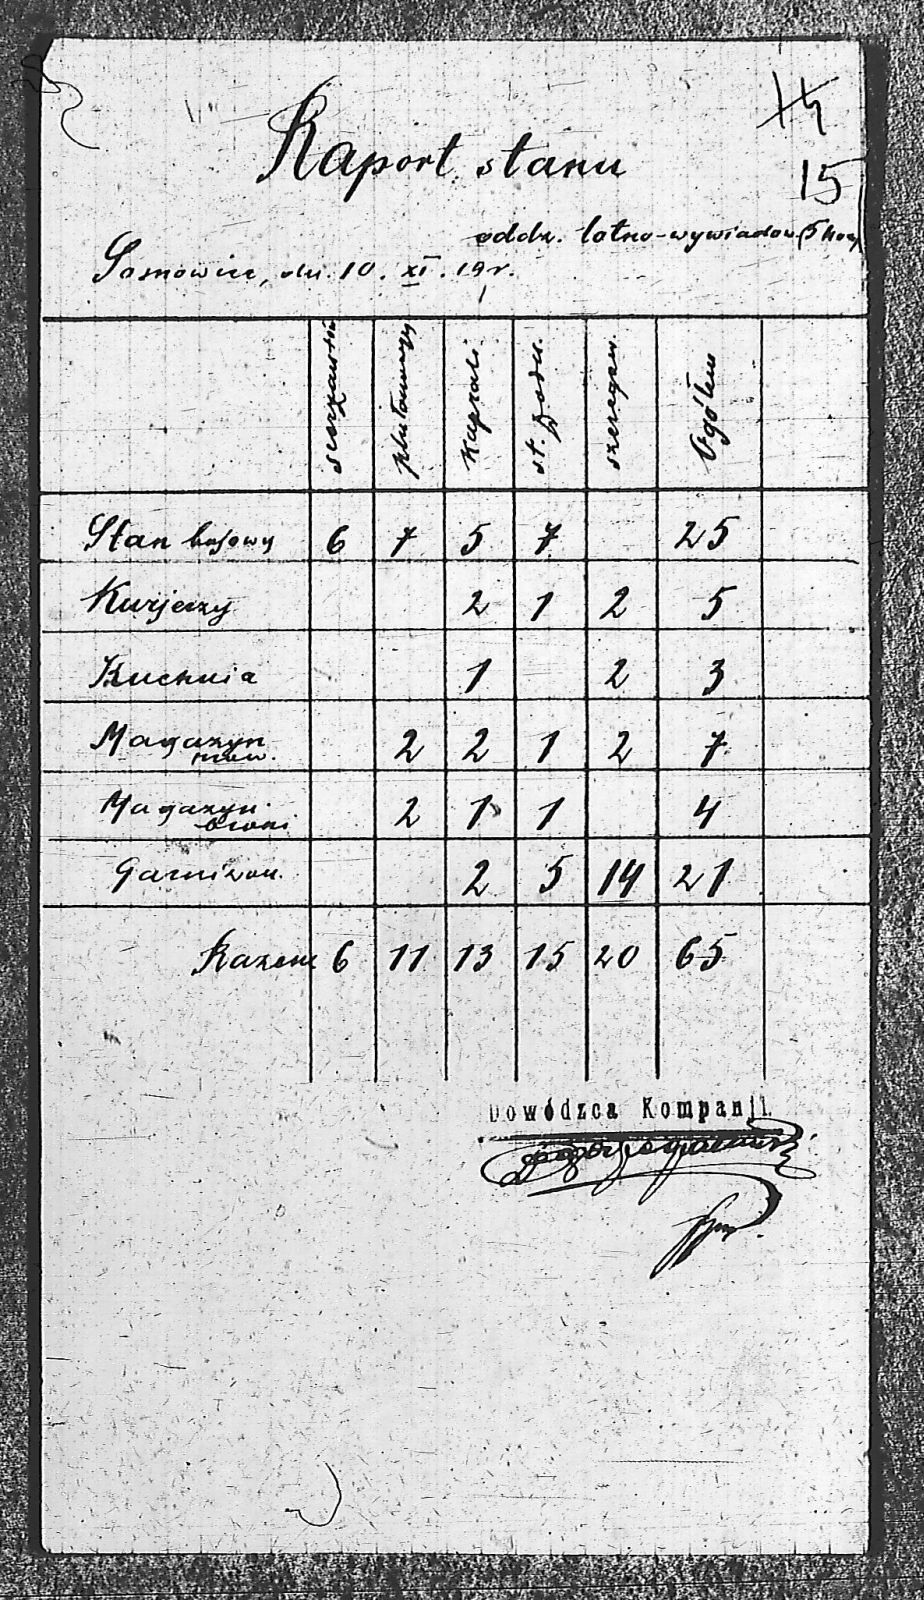 14
15
Raport stanu
oddz. lotno-wywiadow. (5 kom)
Sosnowice, dn. 10. XI. 19 r.
sierżanci plutonowi Kaprali st. żołn. szereg. Ogółem
Stan bojowy 6 7 5 7 25
Kurjerzy 2 1 2 5
Kuchnia 1 2 3
Magazyn 2 2 1 2 7
Magazyn broni 2 1 1 4
Garnizon. 2 5 14 21
Razem 6 11 13 15 20 65
Dowódzca Kompanji